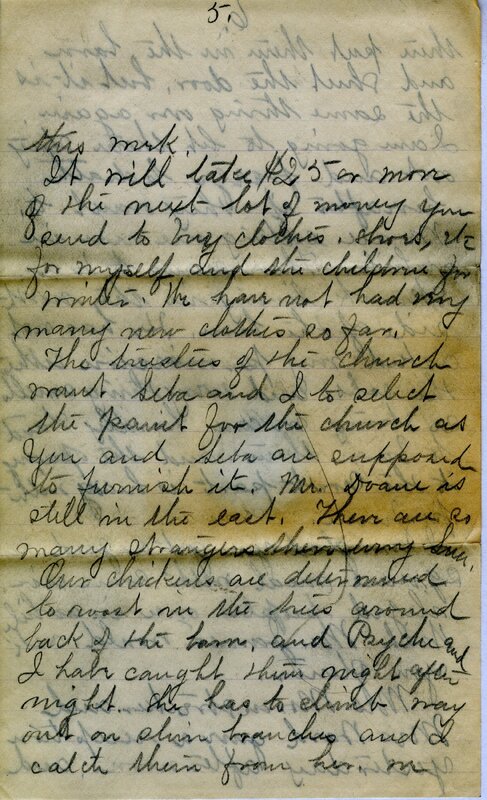 5.
this week.
It will take $25 or more
of the next lot of money you
send to buy clothes, shoes, etc
for myself and the children for
winter. We have not had very
many new clothes so far.
The trustees of the church
want Seba and I to select
the paint for the church as
You and Seba are supposed
to furnish it. Mr. Doane is
still in the east. There are so
many strangers there every Sun.
Our chickens are determined
to roost in the trees around
back of the barn, and Psyche and
I have caught them night after
night. She has to climb way
out on slim branches and I
catch them from her, we